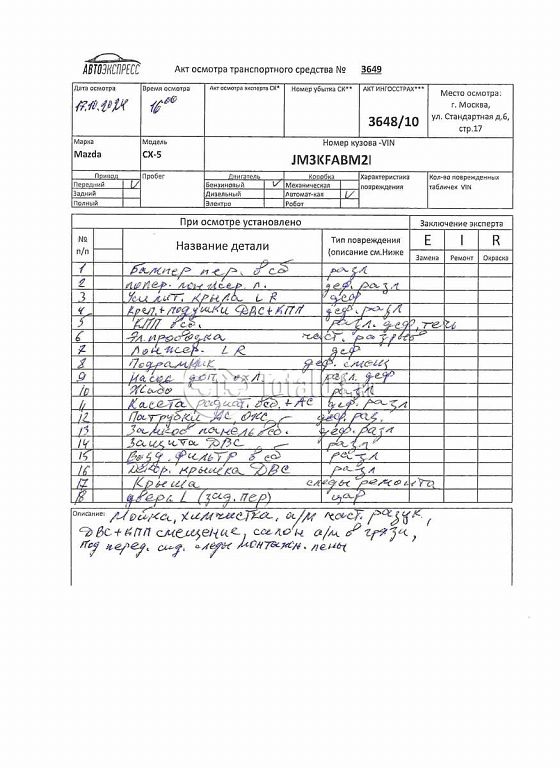 АВТОЭКСПРЕСС
Акт осмотра транспортного средства № 3649
Дата осмотра Время осмотра Акт осмотра эксперта СК* Номер убытка СК** АКТ ИНГОССТРАХ*** Место осмотра:
17.10.2024 16 00 3648/10 г. Москва,
ул. Стандартная д.6,
стр.17
Марка Модель Номер кузова -VIN
Mazda CX-5 JM3KFABM2I
Привод Пробег Двигатель Коробка Характеристика Кол-во поврежденных
Передний V Бензиновый V Механическая повреждения табличек VIN
Задний Дизельный Автомат-кая V
Полный Электро Робот
При осмотре установлено Заключение эксперта
№ Название детали Тип повреждения E I R
п/п (описание см.Ниже Замена Ремонт Окраска
1 Бампер пер. в сб разл
2 попер. лонжер. п. деф. разл
3 Усилит. крыла L R деф
4 Креп.+подушки ДВС+КПП деф. разл
5 КПП в сб. разл. деф, течь
6 Эл проводка част. разрыв
7 Лонжер. L R деф
8 Подрамник деф. смещ
9 Насос доп. охл разл. деф
10 Жабо разл
11 Касета радиат. в сб.+АС деф. разл
12 Патрубки АС ОЖС деф. раз.
13 Замков панель в сб. деф. разл
14 Защита ДВС разл
15 Возд. фильтр в сб разл
16 Декор. крышка ДВС разл
17 Крыша следы ремонта
18 дверь L (зад. пер) цар
Описание: Мойка, химчистка, а/м част. разук,
ДВС+КПП смещение, салон а/м в грязи,
Под перед. сид. следы монтажн. пены